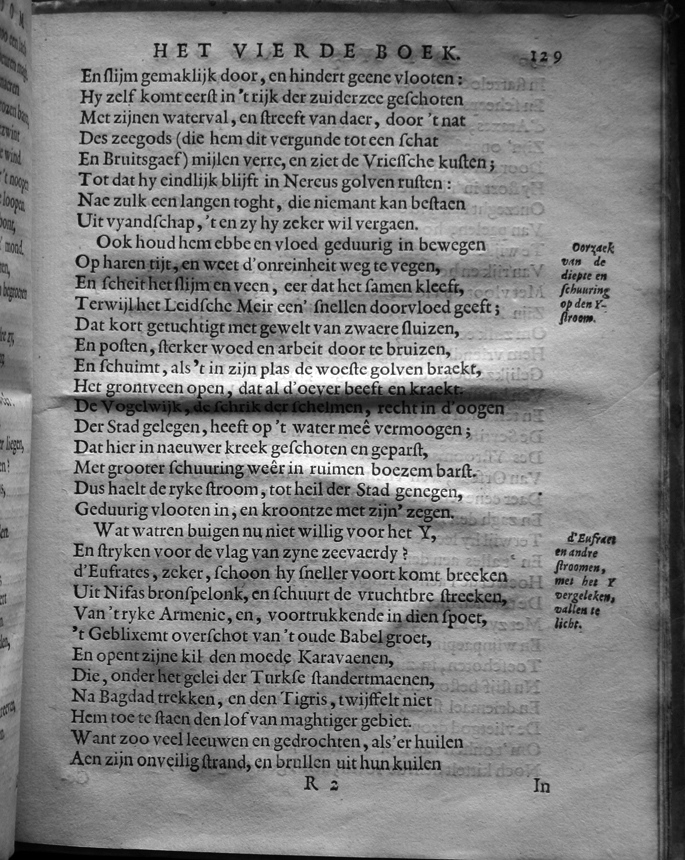 HET VIERDE BOEK. 129
En slijm gemaklijk door, en hindert geene vlooten:
Hy zelf komt eerst in 't rijk der zuiderzee geschoten
Met zijnen waterval, en streeft van daer, door 't nat
Des zeegods (die hem dit vergunde tot een schat
En Bruitsgaef) mijlen verre, en ziet de Vriessche kusten;
Tot dat hy eindlijk blijft in Nereus golven rusten:
Nae zulk een langen toght, die niemant kan bestaen
Uit vyandschap, 't en zy hy zeker wil vergaen.
Ook houd hem ebbe en vloed geduurig in bewegen
Op haren tijt, en weet d'onreinheit weg te vegen,
En scheit het slijm en veen, eer dat het samen kleeft,
Terwijl het Leidsche Meir een' snellen doorvloed geeft;
Dat kort getuchtigt met gewelt van zwaere sluizen,
En posten, sterker woed en arbeit door te bruizen,
En schuimt, als 't in zijn plas de woeste golven braekt,
Het grontveen open, dat al d'oever beeft en kraekt.
De Vogelwijk, de schrik der schelmen, recht in d'oogen
Der Stad gelegen, heeft op 't water meê vermoogen;
Dat hier in naeuwer kreek geschoten en geparst,
Met grooter schuuring weêr in ruimen boezem barst.
Dus haelt de ryke stroom, tot heil der Stad genegen,
Geduurig vlooten in, en kroontze met zijn' zegen.
Oorzaek
van de
diepte en
schuuring
op den Y-
stroom.
Wat watren buigen nu niet willig voor het Y,
En stryken voor de vlag van zyne zeevaerdy?
d'Eufrates, zeker, schoon hy sneller voort komt breeken
Uit Nifas bronspelonk, en schuurt de vruchtbre streeken,
Van 't ryke Armenie, en, voortrukkende in dien spoet,
't Geblixemt overschot van 't oude Babel groet,
En opent zijne kil den moede Karavaenen,
Die, onder het gelei der Turkse standertmaenen,
Na Bagdad trekken, en den Tigris, twijffelt niet
Hem toe te staen den lof van maghtiger gebiet.
Want zoo veel leeuwen en gedrochten, als'er huilen
Aen zijn onveilig strand, en brullen uit hun kuilen
d'Eufraet
en andre
stroomen,
met het Y
vergeleken,
vallen te
licht.
R 2 In